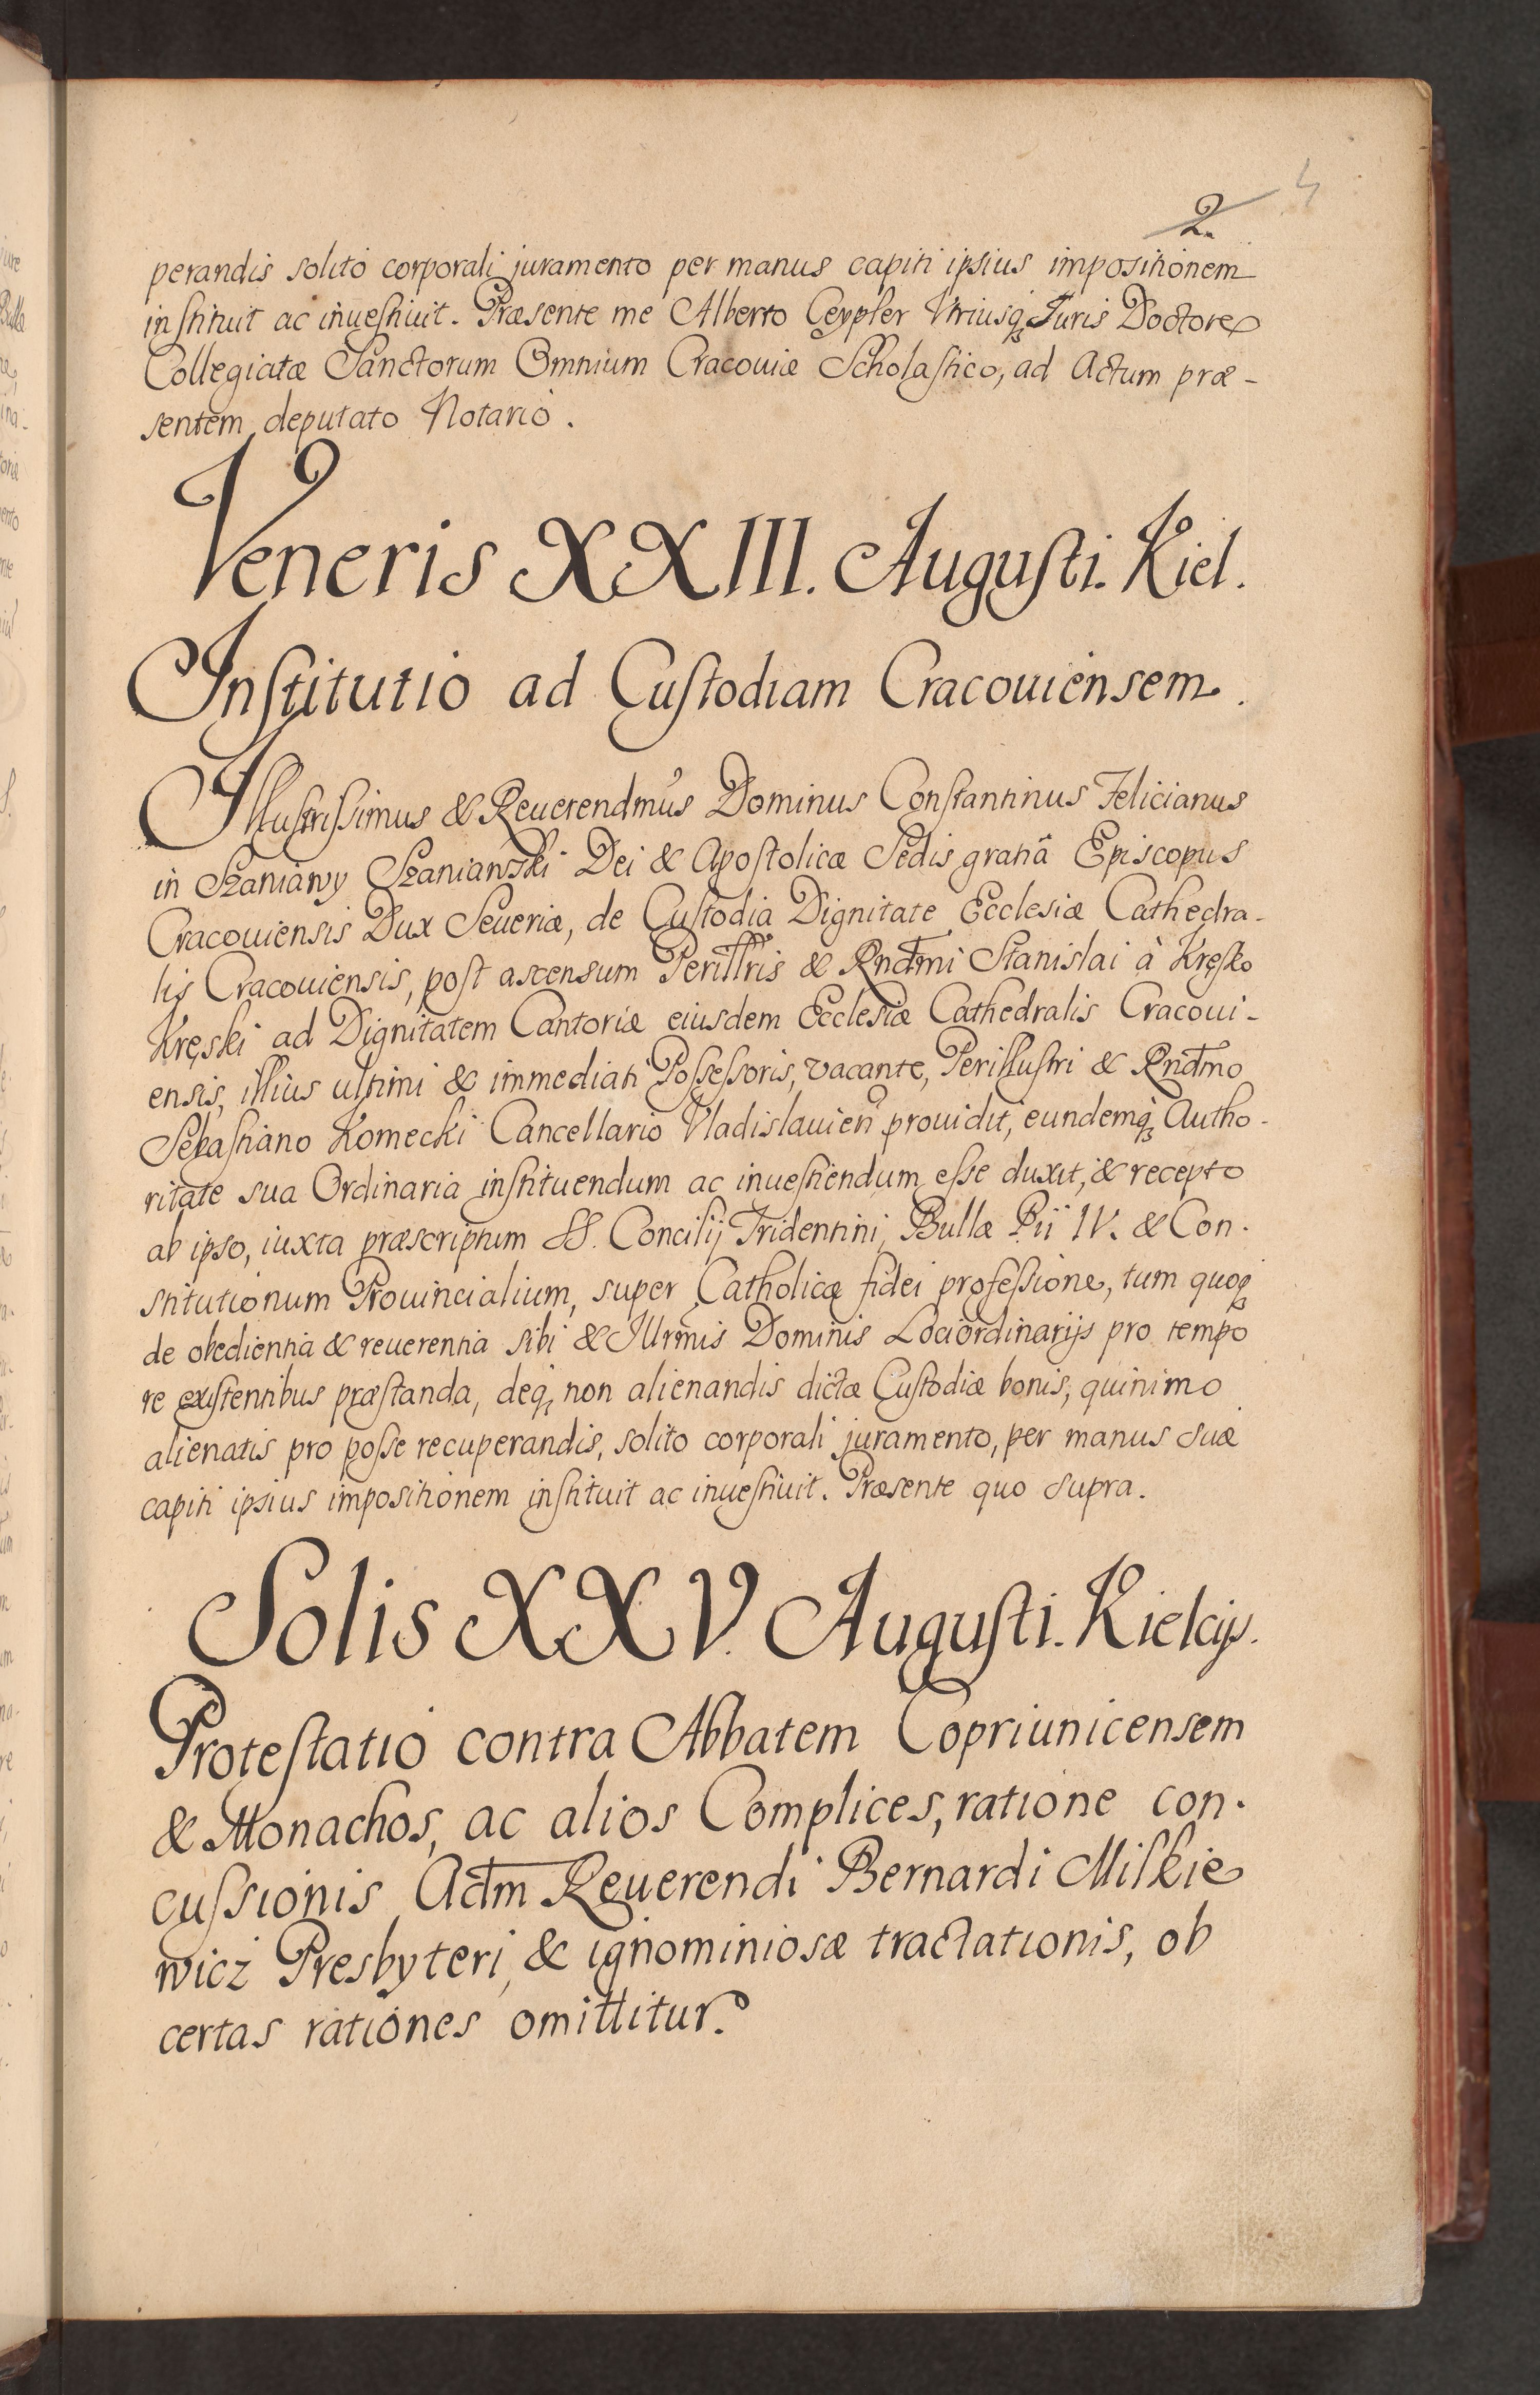 2.
4
perandis solito corporali juramento per manus capiti ipsius impositionem
instituit ac inuestiuit. Præsente me Alberto Ceypler Vtriusq; Juris Doctore
Collegiatæ Sanctorum Omnium Cracouiæ Scholastico, ad Actum præ-
sentem deputato Notario.
Veneris XXIII. Augusti. Kiel.
Institutio ad Custodiam Cracouiensem.
Illustrissimus & Reuerendmus Dominus Constantinus Felicianus
in Szaniawy Szaniawski Dei & Apostolicæ Sedis gratiâ Episcopus
Cracouiensis Dux Seueriæ, de Custodia Dignitate Ecclesiæ Cathedra-
lis Cracouiensis, post ascensum Perillris & Rndmi Stanislai à Kręsko
Kręski ad Dignitatem Cantoriæ eiusdem Ecclesiæ Cathedralis Cracoui-
ensis, illius ultimi & immediati Possessoris, vacante, Perillustri & Rndmo
Sebastiano Komecki Cancellario Vladislauien prouidit, eundemq; Autho-
ritate sua Ordinaria instituendum ac inuestiendum esse duxit, & recepto
ab ipso, iuxta præscriptum SS. Concilij Tridentini, Bullæ Pii IV. & Con-
stitutionum Prouincialium, super Catholicæ fidei professione, tum quoq;
de obedientia & reuerentia sibi & Illrmis Dominis Lociordinarijs pro tempo
re existentibus præstanda, deq; non alienandis dictæ Custodiæ bonis, quinimo
alienatis pro posse recuperandis, solito corporali juramento, per manus suæ
capiti ipsius impositionem instituit ac inuestiuit. Præsente quo supra.
Solis XXV. Augusti. Kielcijs.
Protestatio contra Abbatem Copriunicensem
& Monachos, ac alios Complices, ratione con-
cussionis Adm Reuerendi Bernardi Miskie
wicz Presbyteri, & ignominiosæ tractationis, ob
certas rationes omittitur.